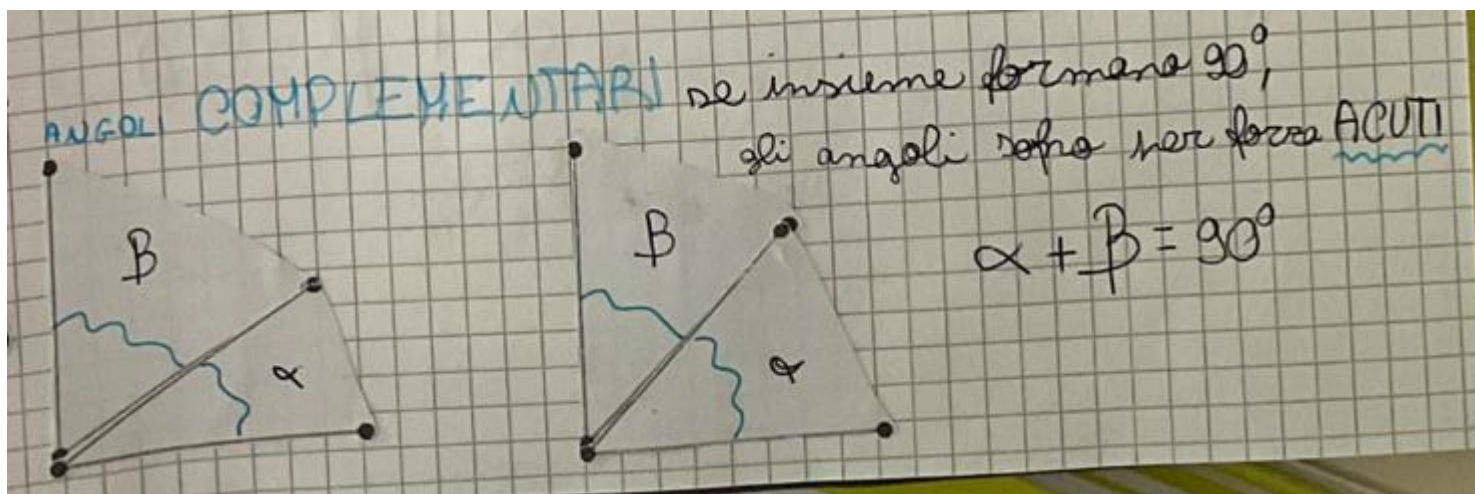 ANGOLI COMPLEMENTARI se insieme formano 90°,
gli angoli sono per forza ACUTI
B
α
B
α
α + B = 90°